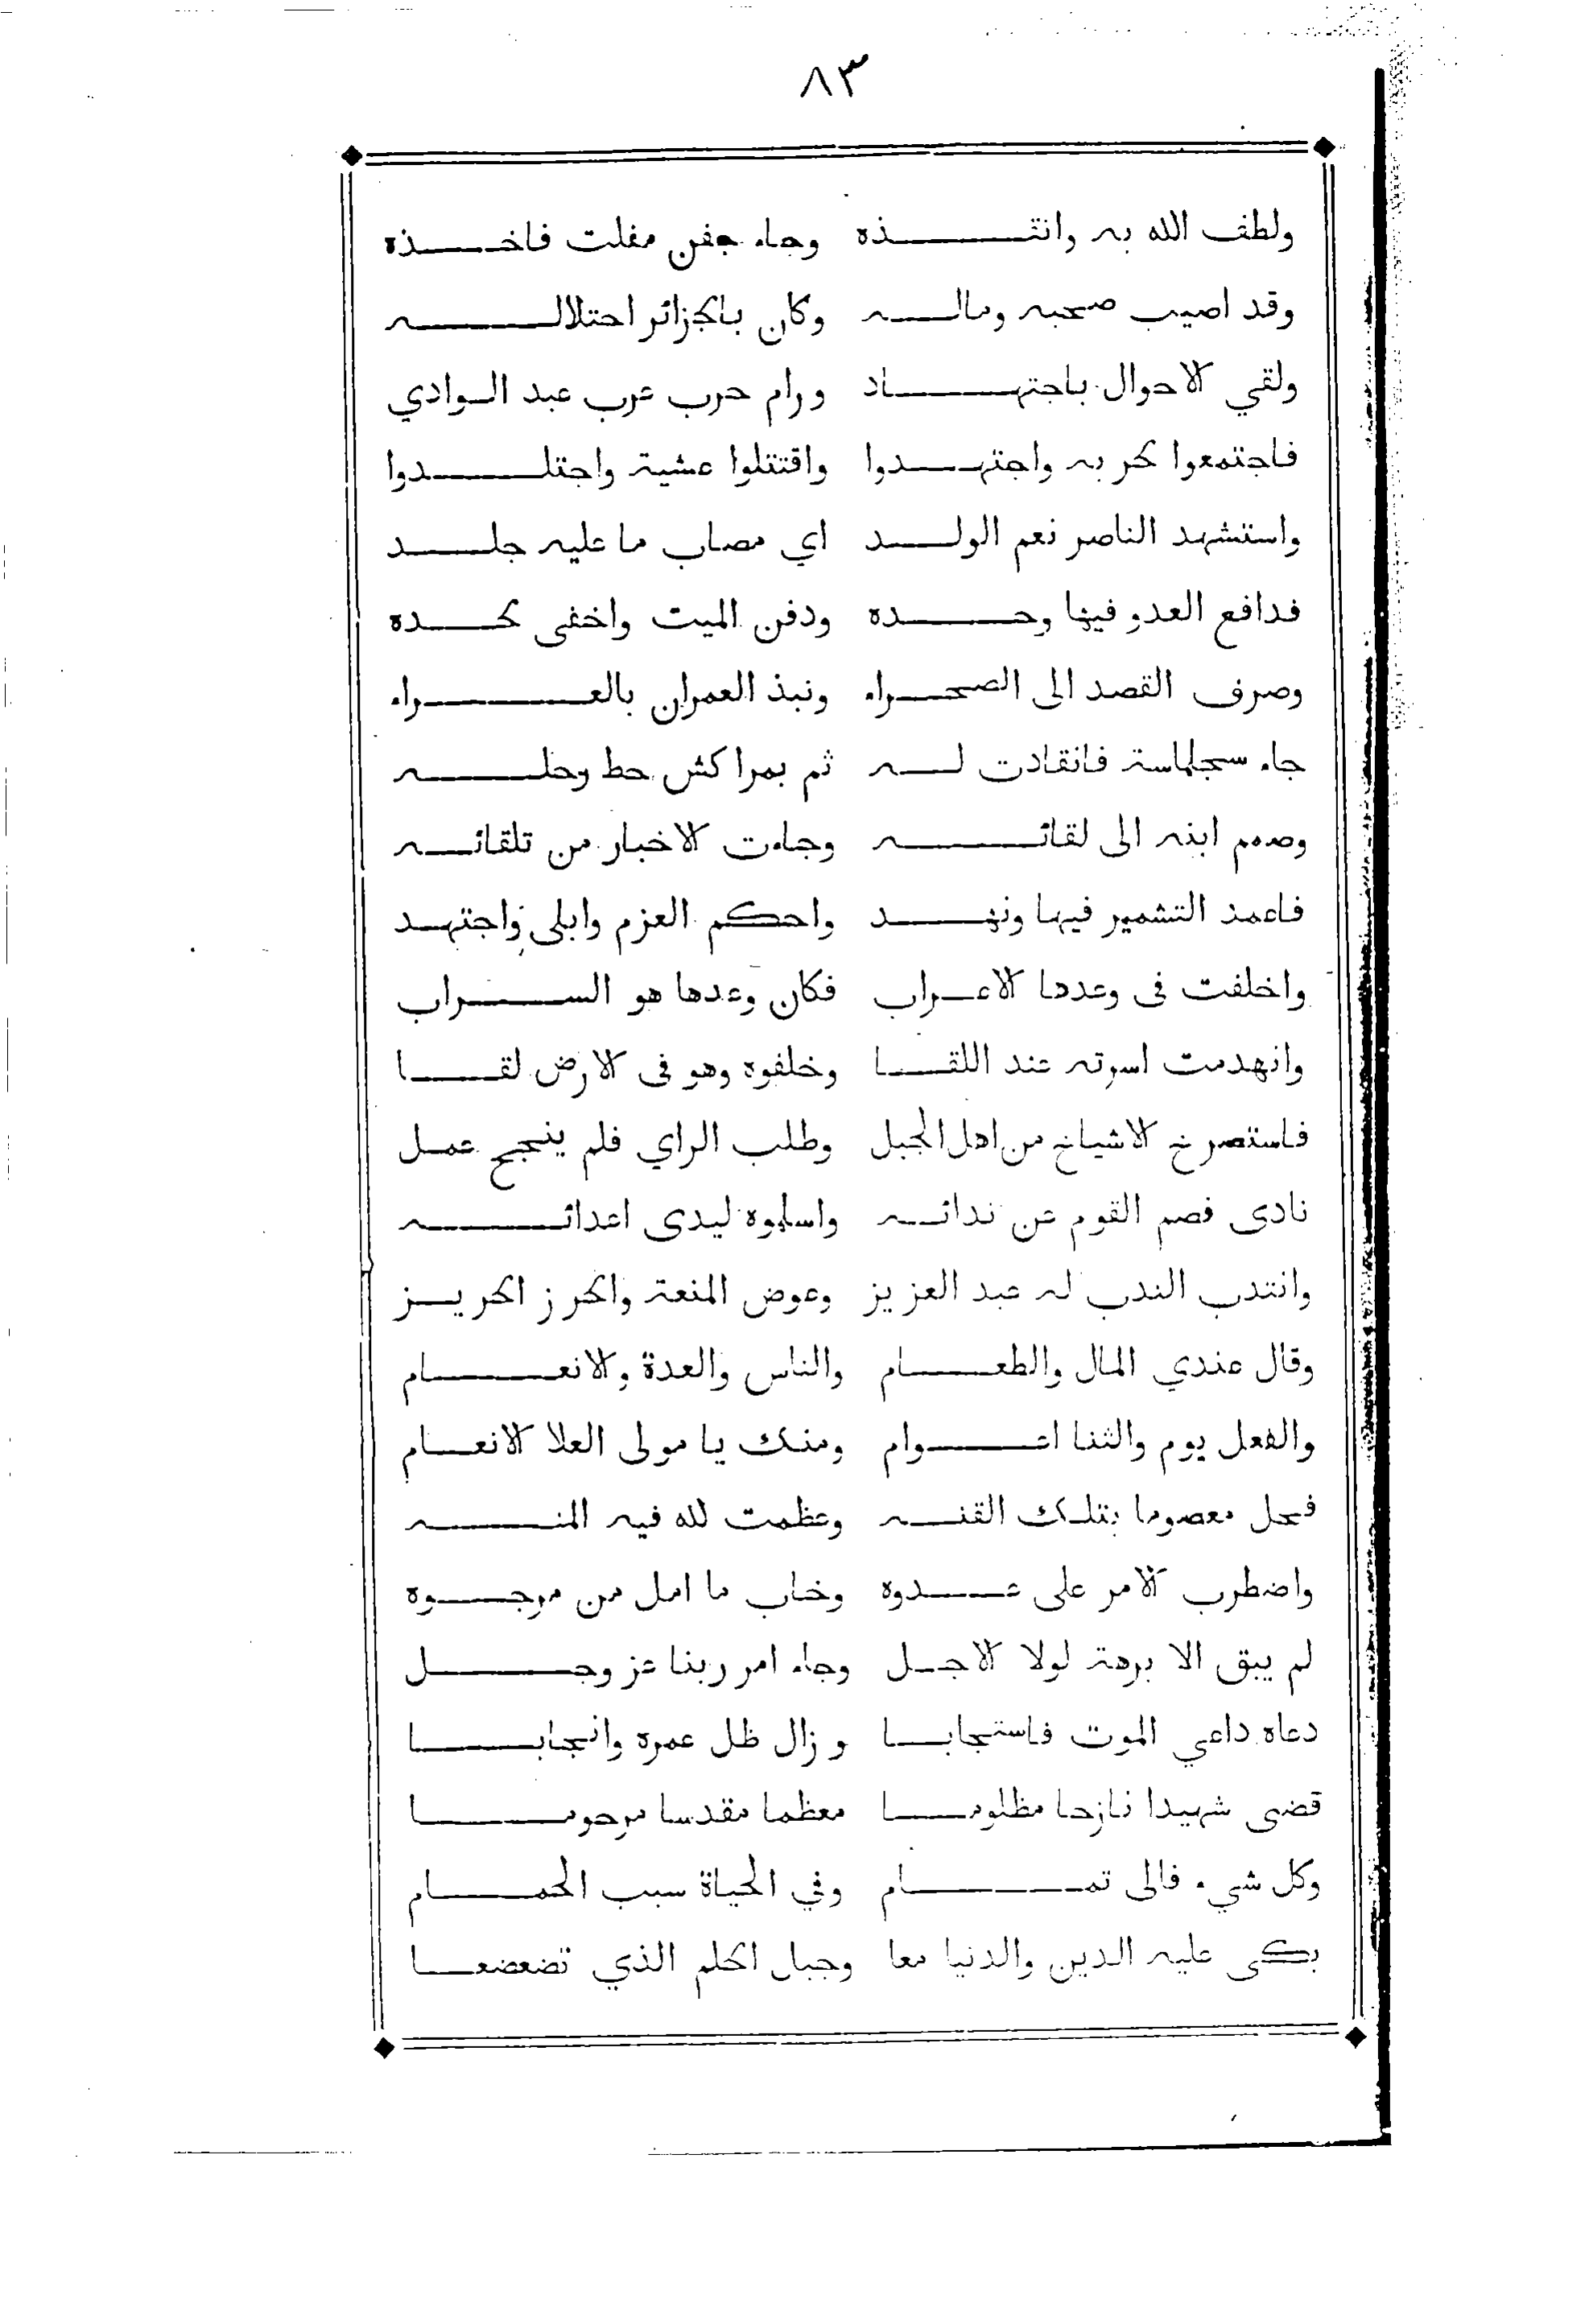 ٨٣
ولطف الله به وانقذه وجاء جفن مفلت فاخذه
وقد اصيب صحبه وماله وكان بالجزائر احتلاله
ولقي الاحوال باجتهاد ورام حرب عرب عبد الوادي
فاجتمعوا لحربه واجتهدوا واقتتلوا عشية واجتلدوا
واستشهد الناصر نعم الولد اي مصاب ما عليه جلد
فدافع العدو فيها وحده ودفن الميت واخفى لحده
وصرف القصد الى الصحراء ونبذ العمران بالعراء
جاء سجلماسة فانقادت له ثم بمراكش حط رحله
وصمم ابنه الى لقائه وجاءت الاخبار من تلقائه
فاعمد التشمير فيها ونهد واحكم العزم وابلى واجتهد
واخلفت فى وعدها الاعراب فكان وعدها هو السراب
وانهدمت اسرته عند اللقا وخلفوه وهو فى الارض لقا
فاستصرخ الاشياخ من اهل الجبل وطلب الراي فلم ينجح عمل
نادى فصم القوم عن ندائه واسلموه ليدى اعدائه
وانتدب الندب له عبد العزيز وعوض المنعة والحرز الحريز
وقال عندي المال والطعام والناس والعدة والانعام
والفعل يوم والثنا اعوام ومنك يا مولى العلا الانعام
فحل معصوما بتلك القنه وعظمت لله فيه المنه
واضطرب الامر على عدوه وخاب ما امل من مرجوه
لم يبق الا برهة لولا الاجل وجاء امر ربنا عز وجل
دعاه داعي الموت فاستجابا وزال ظل عمره وانجابا
قضى شهيدا نازحا مظلوما معظما مقدسا مرحوما
وكل شيء فالى تمام وفي الحياة سبب الحمام
بكى عليه الدين والدنيا معا وجبل الحلم الذي تضعضعا